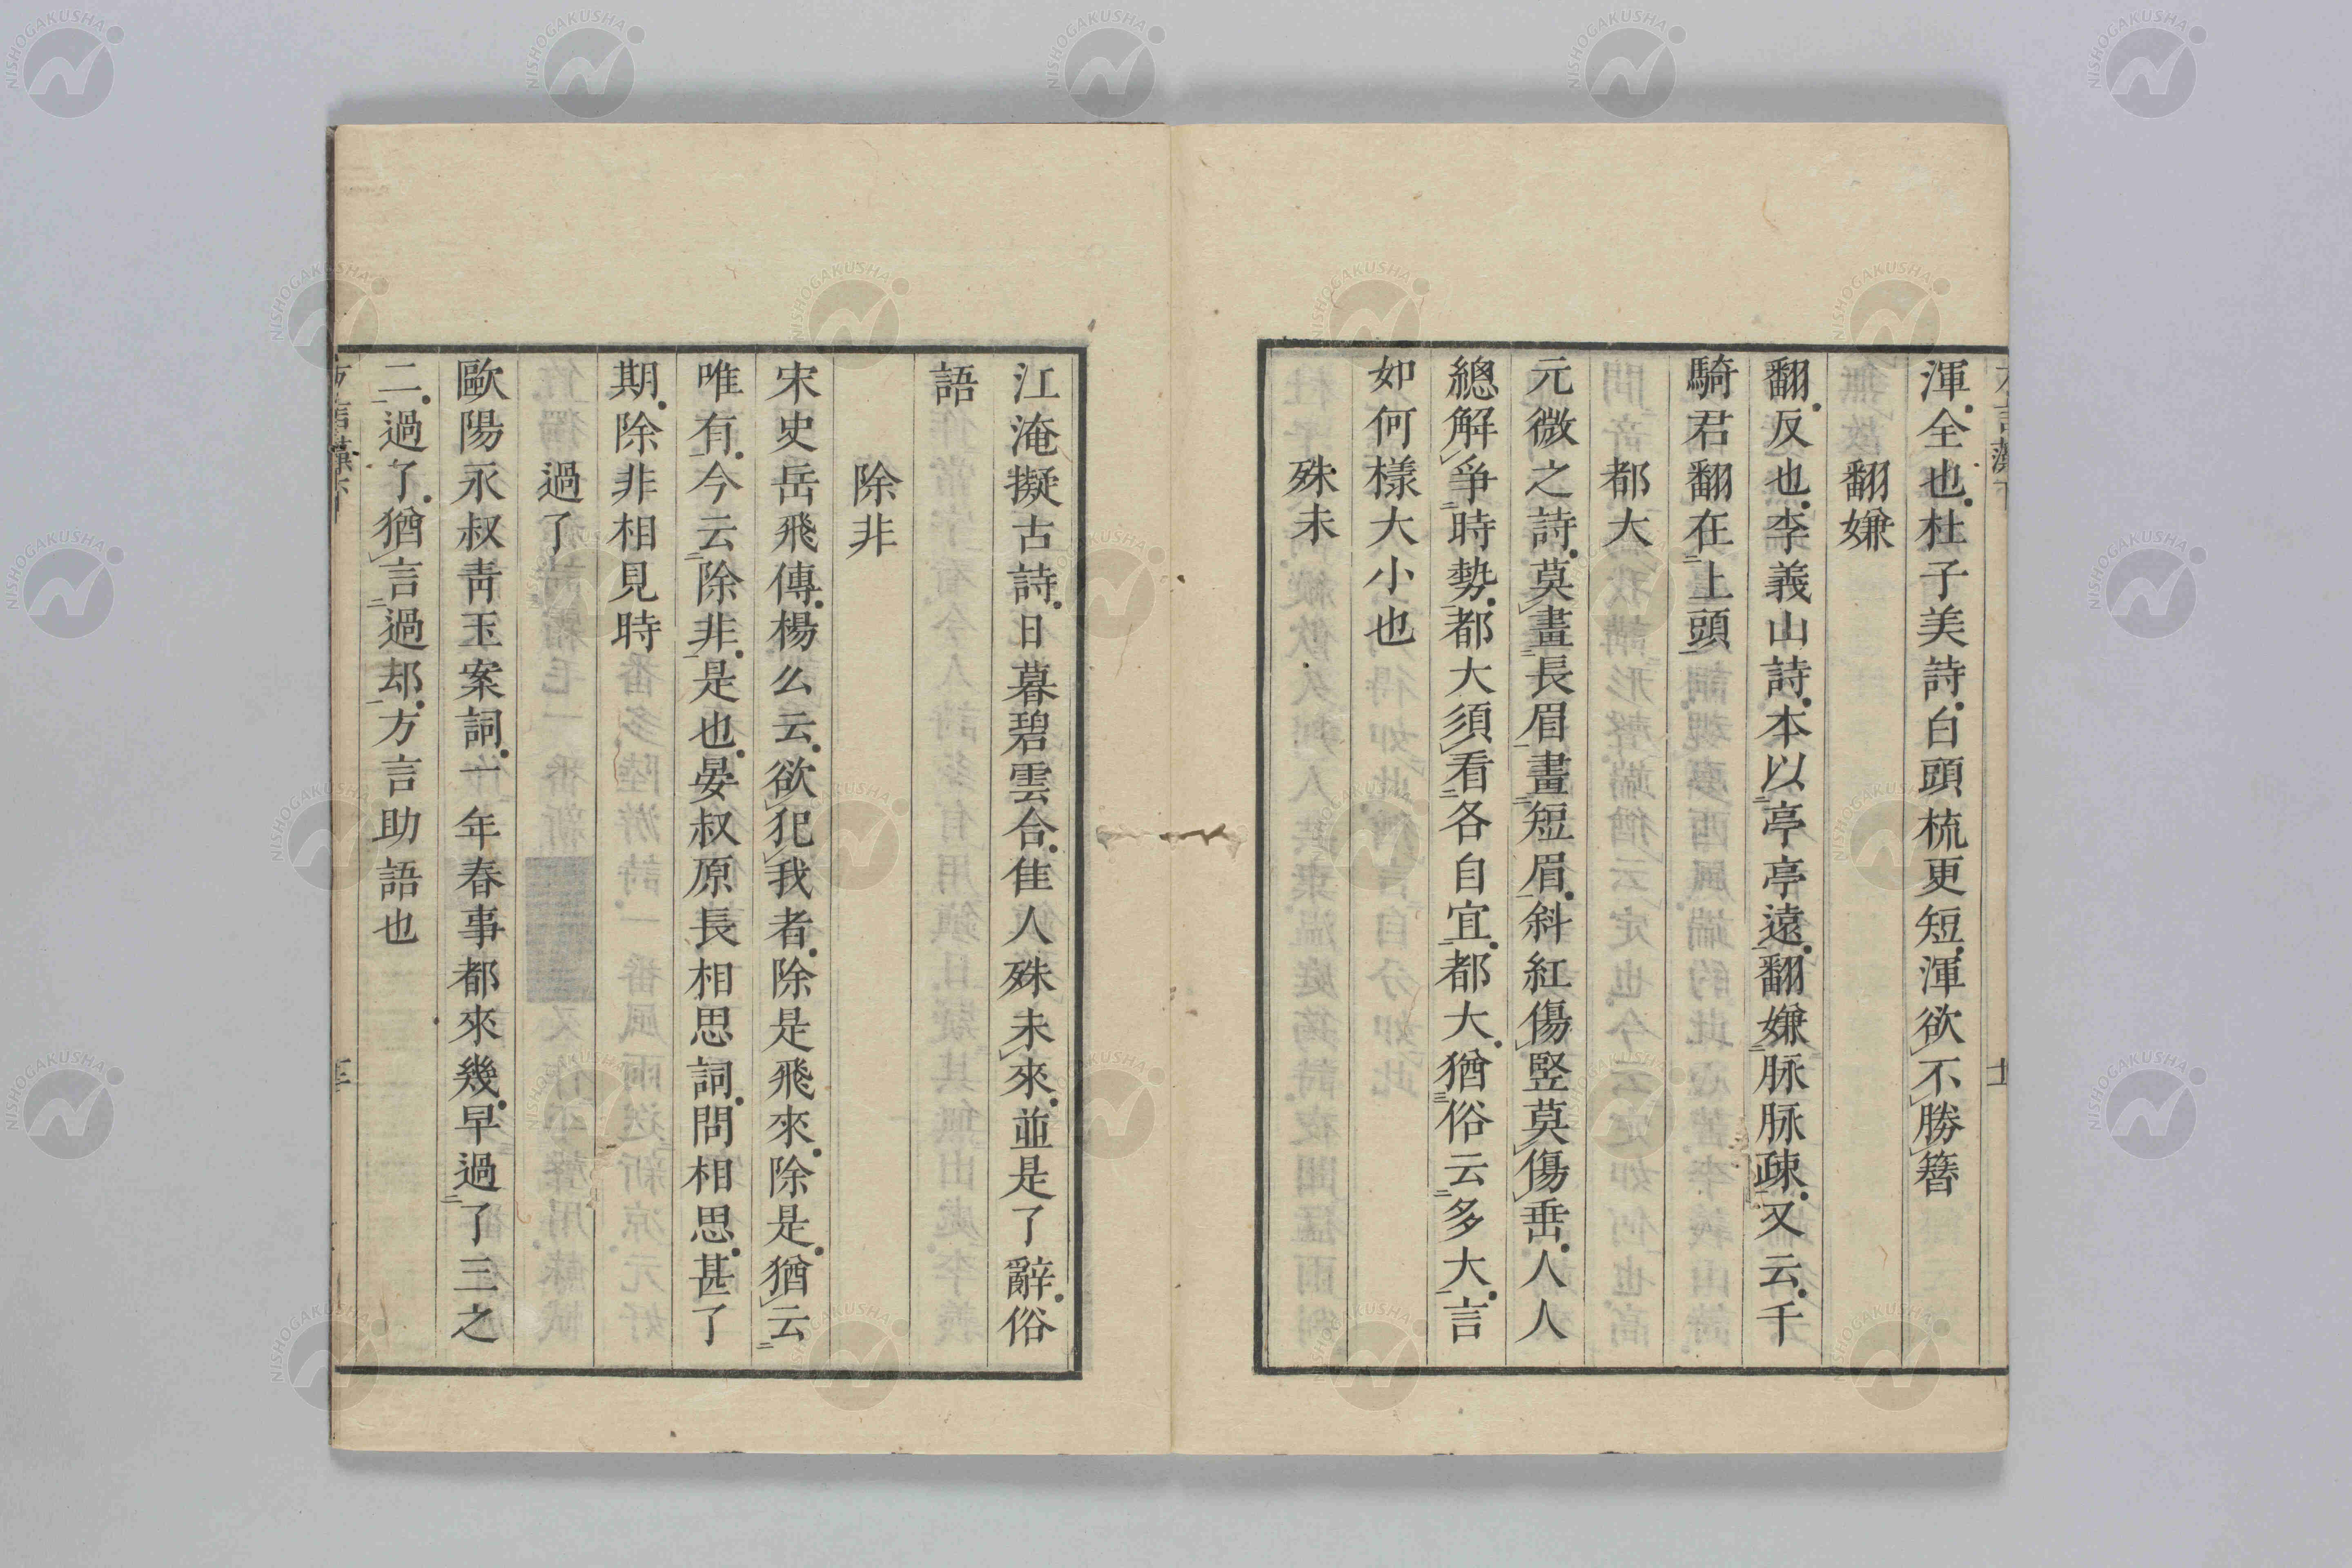 渾全也杜子美詩白頭梳更短渾欲不勝簪
翻嫌
翻反也李義山詩本以亭亭遠翻嫌脉脉疎又云千
騎君翻在上頭
都大
元微之詩莫畫長眉畫短眉斜紅傷豎莫傷垂人人
總解爭時勢都大須看各自宜都大猶俗云多大言
如何樣大小也
殊未
江淹擬古詩日暮碧雲合隹人殊未來並是了辭俗
語
除非
宋史岳飛傳楊么云欲犯我者除是飛來除是猶云
唯有今云除非是也晏叔原長相思詞問相思甚了
期除非相見時
過了
歐陽永叔青玉案詞一年春事都來幾早過了三之
二過了猶言過却方言助語也
NISHOGAKUSHA